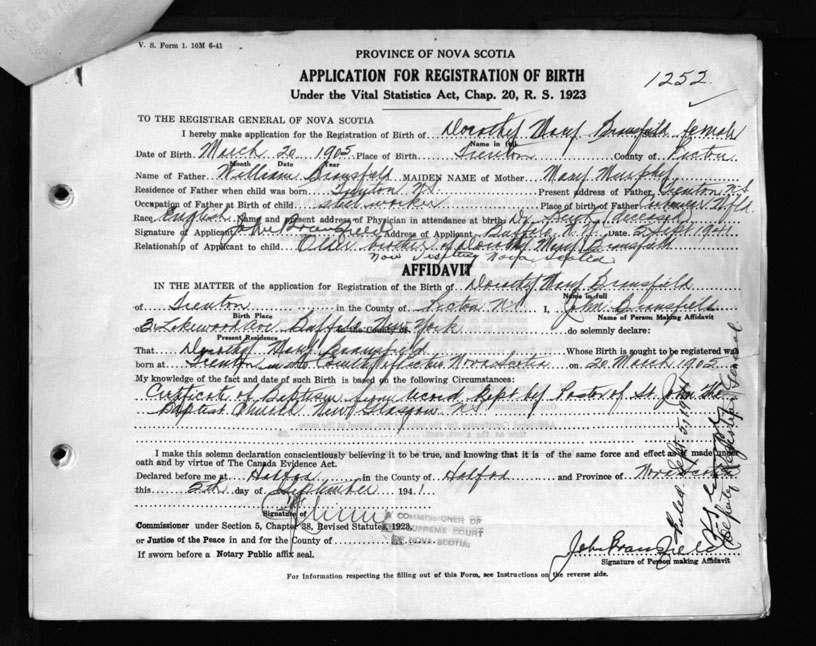 V. S. Form 1. 10M 6-41
PROVINCE OF NOVA SCOTIA
APPLICATION FOR REGISTRATION OF BIRTH
1252
Under the Vital Statistics Act, Chap. 20, R. S. 1923
TO THE REGISTRAR GENERAL OF NOVA SCOTIA
I hereby make application for the Registration of Birth of Dorothy Mary Bransfield female
Name in full
Date of Birth March 20 1905 Place of Birth Trenton County of Pictou
Month Date Year
Name of Father William Bransfield MAIDEN NAME of Mother Mary Murphy
Residence of Father when child was born Trenton N.S. Present address of Father Trenton N.S.
Occupation of Father at Birth of child steel worker Place of birth of Father Nfld
Race English Name and present address of Physician in attendance at birth Dr. (deceased)
Signature of Applicant John Bransfield Address of Applicant Buffalo N.Y. Date 5 Sept 1941
Relationship of Applicant to child Older brother of Dorothy Mary Bransfield
Now visiting Nova Scotia
AFFIDAVIT
IN THE MATTER of the application for Registration of the Birth of Dorothy Mary Bransfield
Name in full
of Trenton in the County of Pictou N.S. I, John Bransfield
Birth Place Name of Person Making Affidavit
of 3 Lakewood Ave Buffalo in the County of New York do solemnly declare:
Present Residence
That Dorothy Mary Bransfield Whose Birth is sought to be registered was
born at Trenton in the County of Pictou Nova Scotia on 20 March 1905
My knowledge of the fact and date of such Birth is based on the following Circumstances:
Certificate of Baptism from record kept by Pastor of St. John the
Baptist Church New Glasgow N.S.
I make this solemn declaration conscientiously believing it to be true, and knowing that it is of the same force and effect as if made under
oath and by virtue of The Canada Evidence Act.
Declared before me at Halifax in the County of Halifax and Province of Nova Scotia
this 5th day of September 1941
Signature of
Commissioner under Section 5, Chapter 38, Revised Statutes, 1923,
A COMMISSIONER OF
SUPREME COURT
OF NOVA SCOTIA
or Justice of the Peace in and for the County of
If sworn before a Notary Public affix seal.
John Bransfield
Signature of Person making Affidavit
For Information respecting the filling out of this Form, see Instructions on the reverse side.
Filed Sept. 5, 1941
Deputy Registrar General